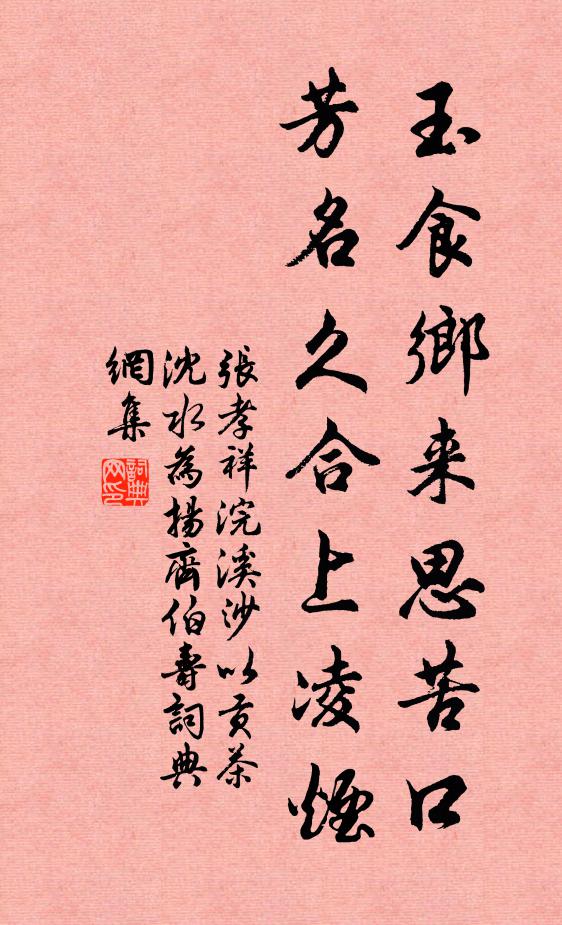 玉食鄉来思苦口
芳名久合上凌煙
張孝祥浣溪沙以貢茶
沈水為揚齊伯壽詞典
網集
詞典
网印